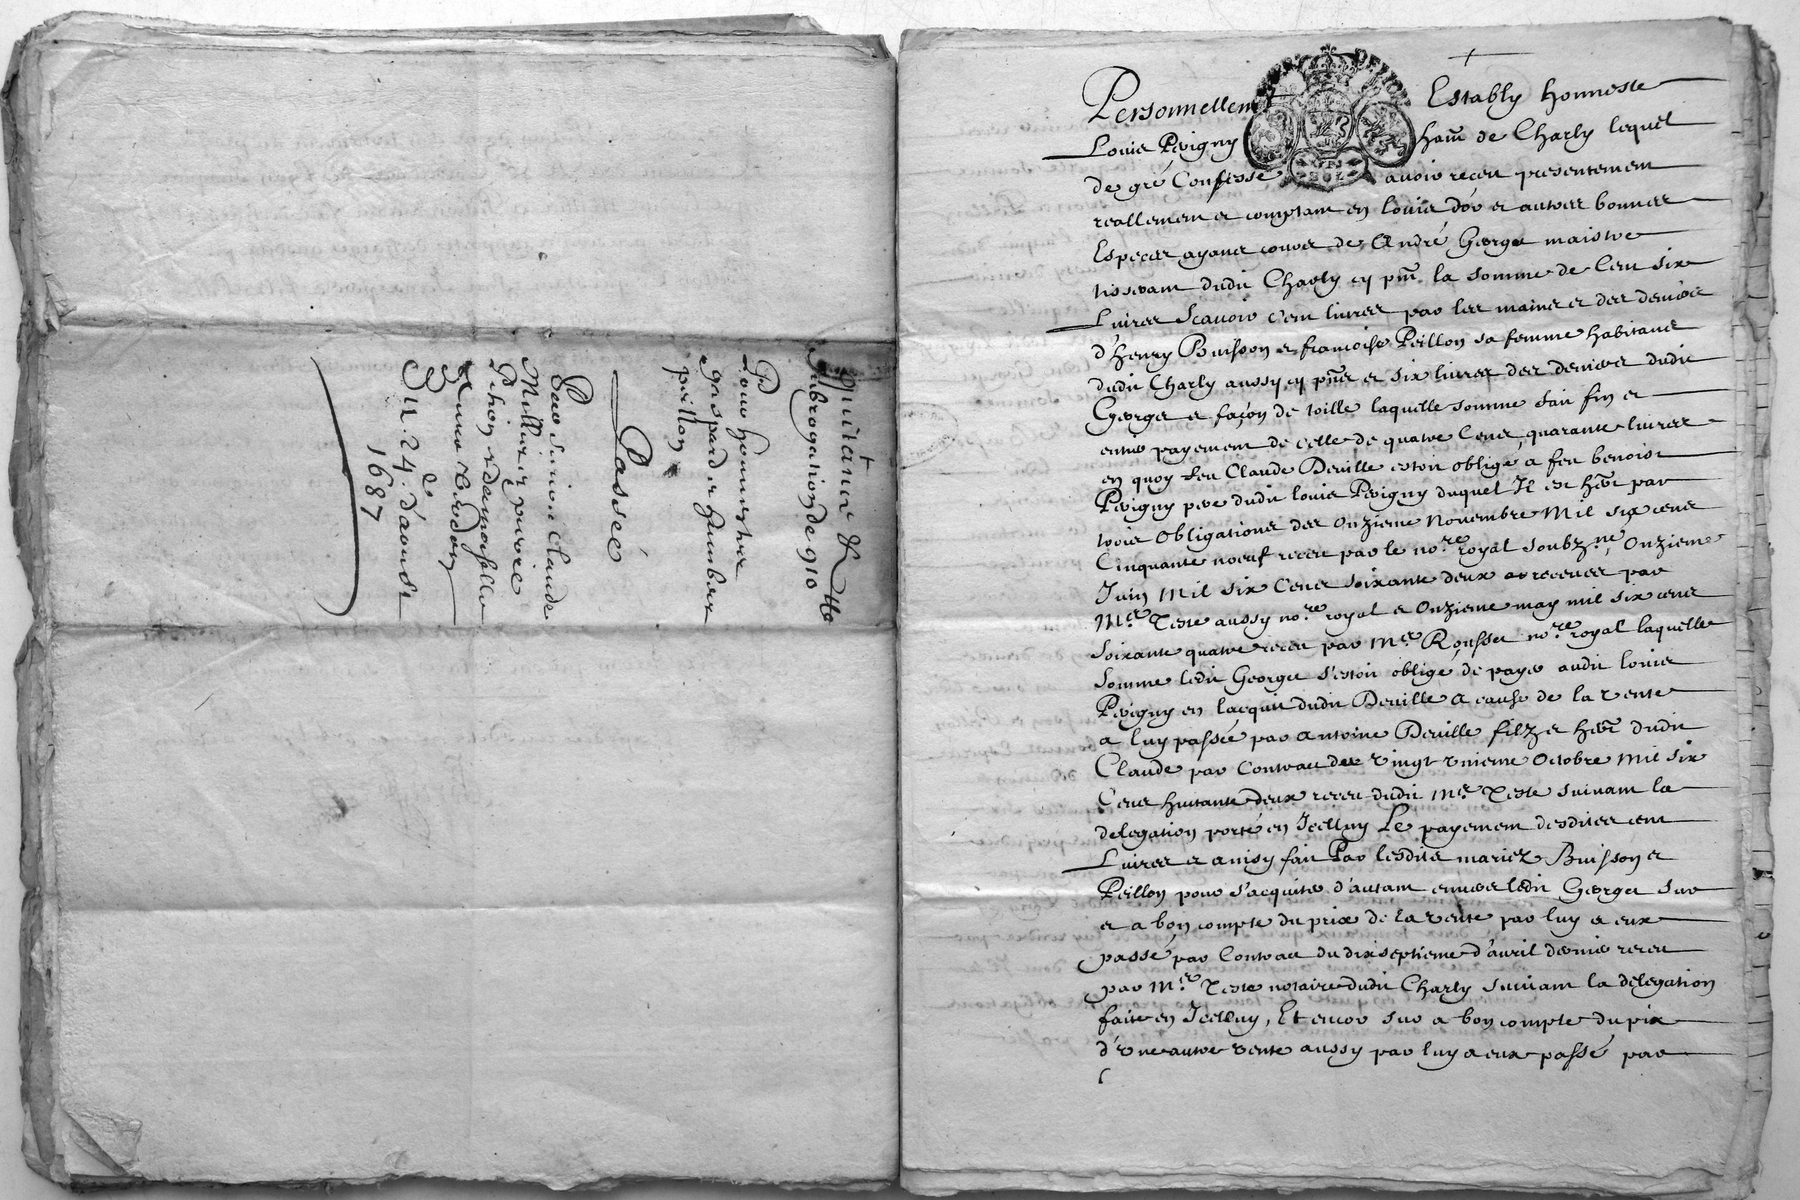 Quittance &
Subrogation de 910 ll
Pour honnestes
gaspard et humbert
peillon
Passée
Par Sieur Claude
Millin et
Pichon et Damoiselle
Du 24.e d'aoust
1687
Personnellem.t Estably honneste
Louis Pevigny ham de Charly lequel
de gré Confesse avoir receu presentement
reallement et comptant en louis d'or et autres bonnes
Especes ayans cours de André George maistre
tisserant dudit Charly cy pnt la somme de Cent six
Livres Scavoir Cent livres par les mains et des deniers
d'henry Buisson et francoise Peillon sa femme habitans
dudit Charly aussy cy pnts et six livres des deniers dudit
George et façon de toille laquelle somme fait fin et
entier payement de celle de quatre Cens quarante livres
en quoy feu Claude Deville estoit obligé a feu benoist
Pevigny pere dudit louis Pevigny duquel Il est her par
trois Obligations des Onzieme Novembre Mil six cens
Cinquante neuf receu par le no.re royal soubz.né, Onzieme
Juin Mil six Cens soixante deux receues par
M.e Teste aussy no.re royal et Onzieme may mil six cens
Soixante quatre receu par M.e Rousset no.re royal laquelle
Somme ledit George s'estoit obligé de payer audit louis
Pevigny en l'acquit dudit Deville a cause de la vente
a luy passée par Antoine Deville filz et her dudit
Claude par Contract du vingt unieme Octobre Mil six
Cens huitante deux receu dudit M.e Teste suivant la
delegation porté en Icelluy Le payement desdites cent
Livres et ainsy fait Par lesdits mariez Buisson et
Peillon pour s'acquiter d'autant envers ledit George sur
et a bon compte du prix de la vente par luy a eux
passé par Contract du dix septieme d'avril dernier receu
par M.e Teste notaire dudit Charly suivant la delegation
faite en Icelluy, Et encor sur a bon compte du prix
d'une autre vente aussy par luy a eux passé par